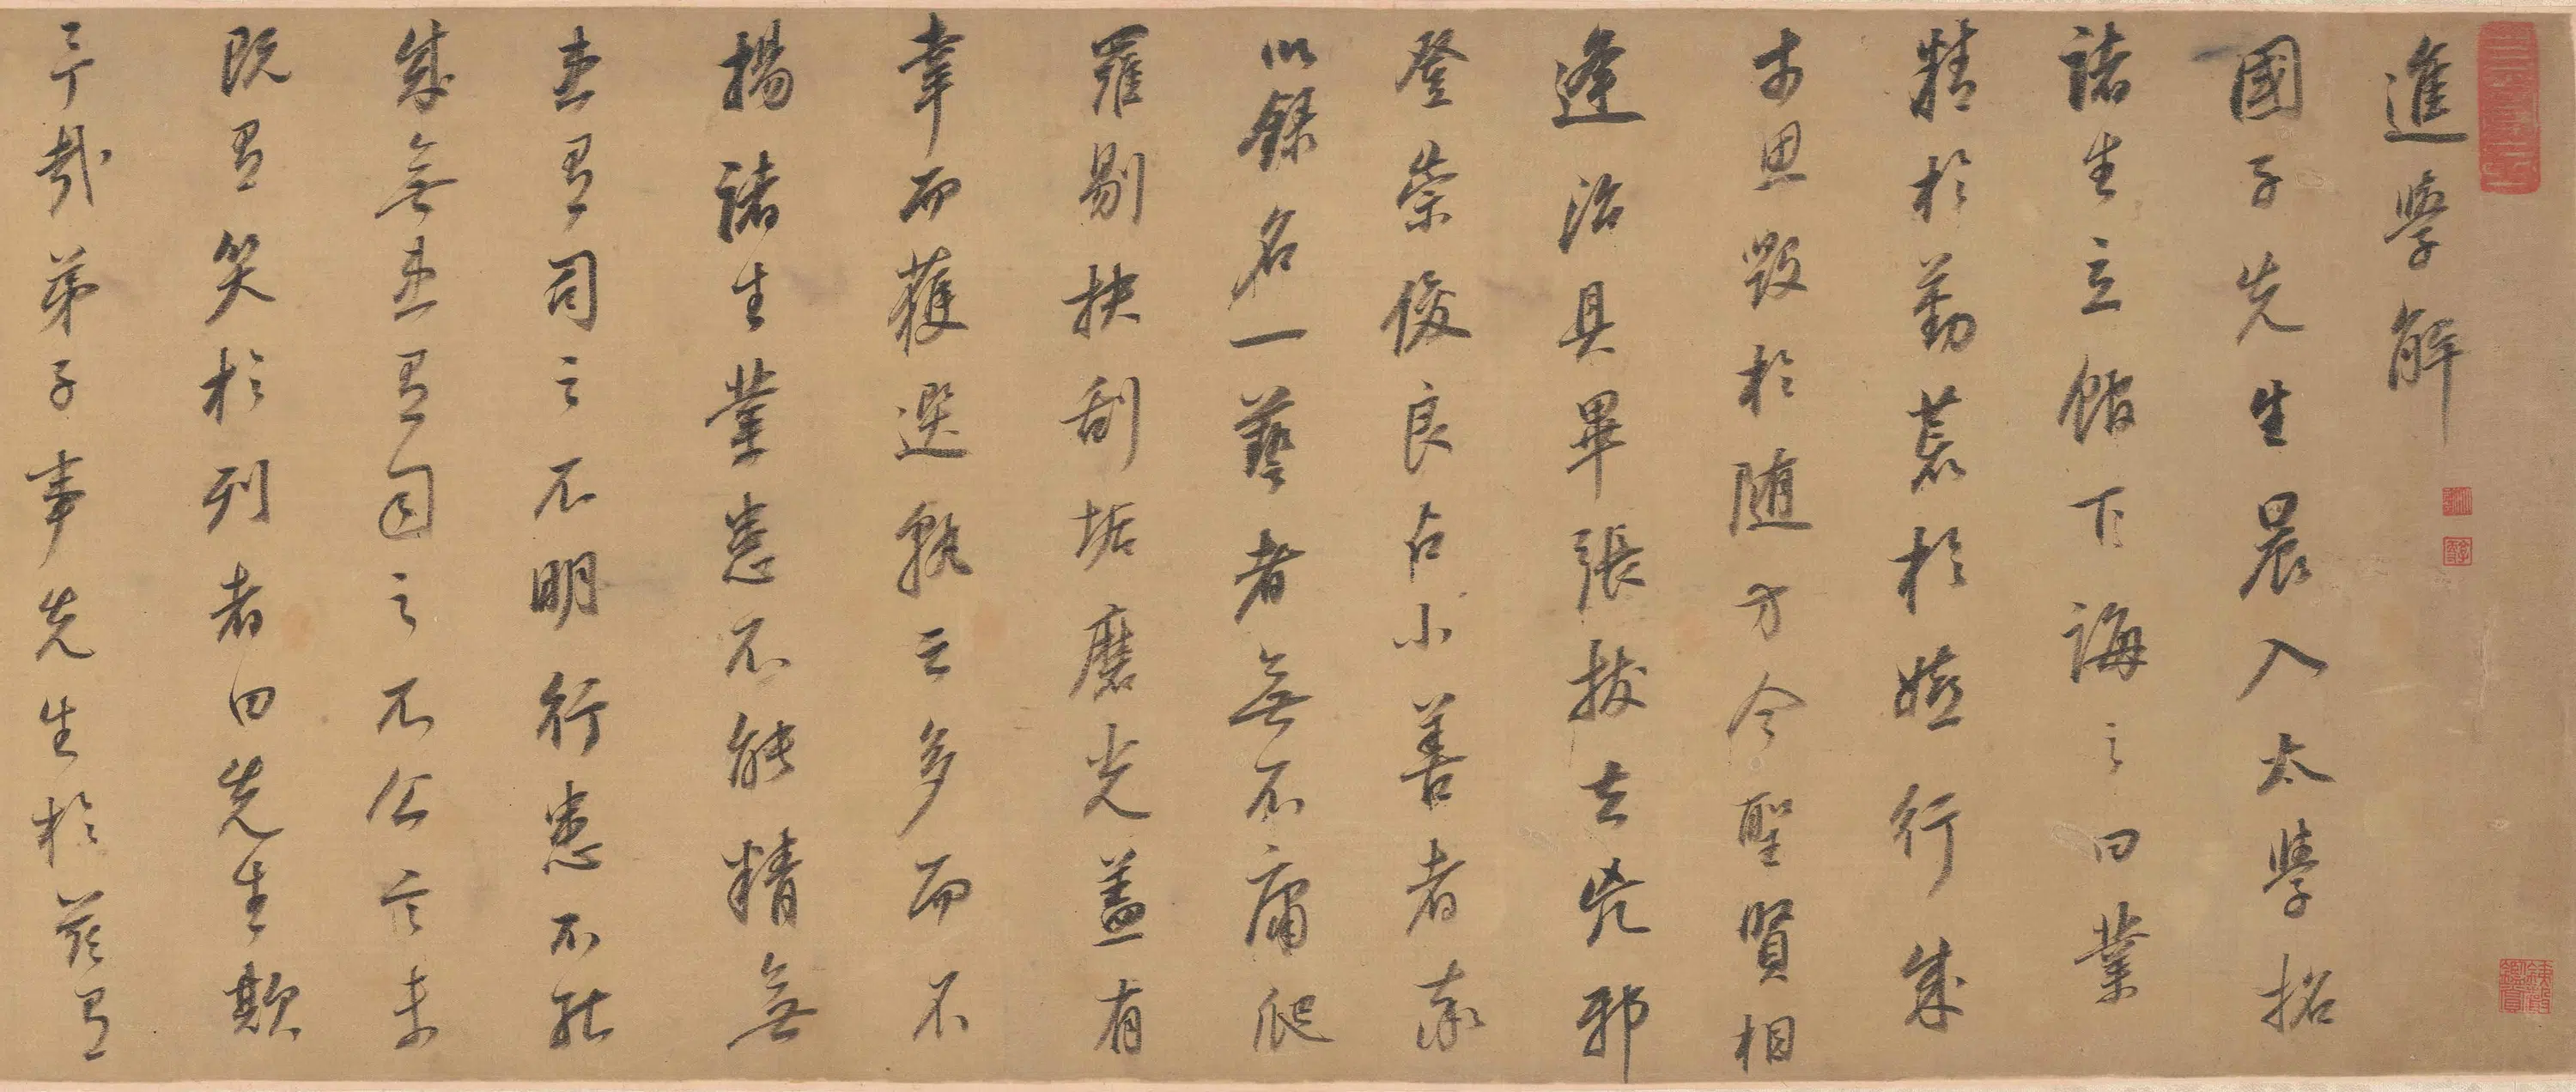 進學解
國子先生晨入太學招
諸生立館下誨之曰業
精於勤荒於嬉行成
于思毀於随方今聖賢相
逢治具畢張拔去兇邪
登崇俊良占小善者率
以錄名一藝者無不庸爬
羅剔抉刮垢磨光蓋有
幸而獲選孰云多而不
揚諸生業患不能精無
患有司之不明行患不能
成無患有司之不公言未
既有笑於列者曰先生欺
予哉弟子事先生於茲有